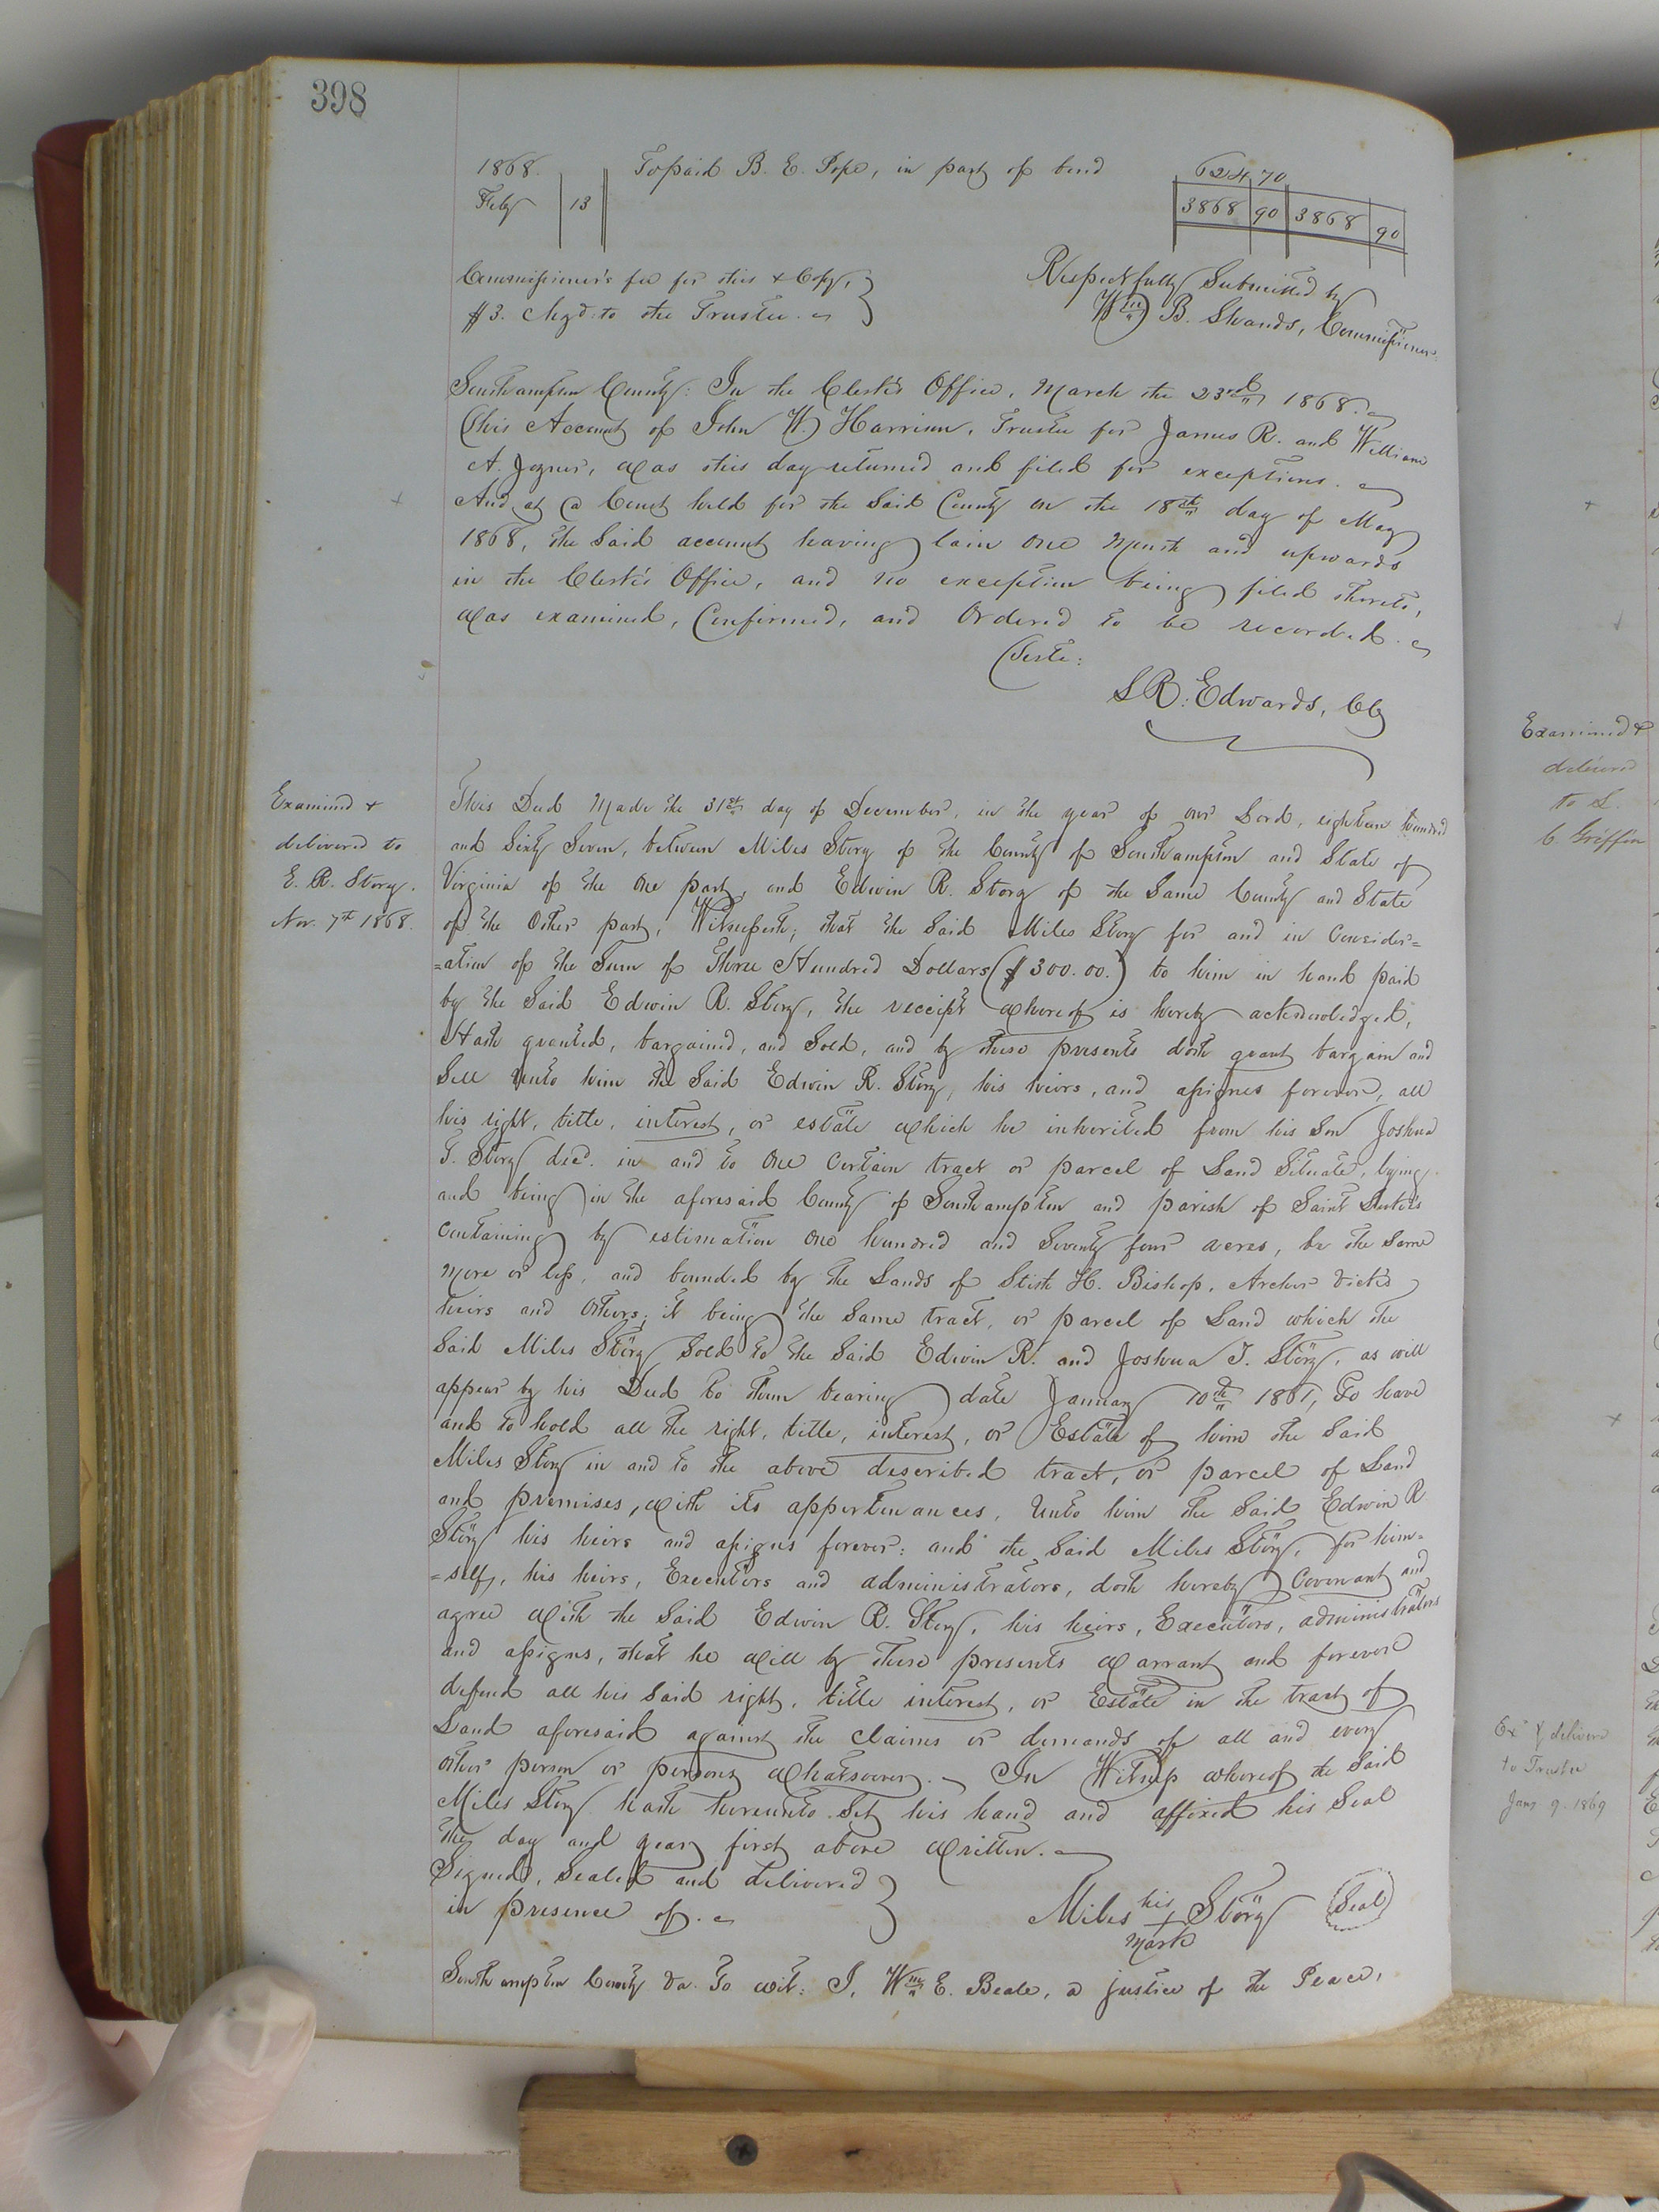 398
1868. To paid B. E. Pope, in part of bond 624 70
Feby 13 3868 90 3868 90
Commissioner's fee for this & Copy,
$3. Chgd. to the Trustee.
Respectfully Submitted by
Wm B. Shands, Commissioner.
Southampton County: In the Clerk's Office, March the 23rd 1868.
This Account of John W. Harrison, Trustee for James R. and William
A. Joyner, was this day returned and filed for exceptions.
And at a Court held for the Said County on the 18th day of May
1868, the Said account having lain one Month and upwards
in the Clerk's Office, and no exception being filed thereto,
was examined, Confirmed, and Ordered to be recorded.
Teste:
L R. Edwards, CC
Examined &
delivered to
E. R. Story.
Nov. 7th 1868.
This Deed Made the 31st day of December, in the year of our Lord, eighteen hundred
and Sixty Seven, between Miles Story of the County of Southampton and State of
Virginia of the one part, and Edwin R. Story of the Same County and State
of the Other part, Witnesseth; that the Said Miles Story for and in Consider=
=ation of the Sum of Three Hundred Dollars ($300.00.) to him in hand paid
by the Said Edwin R. Story, the receipt whereof is hereby acknowledged,
Hath granted, bargained, and Sold, and by these presents doth grant bargain and
Sell unto him the Said Edwin R. Story, his heirs, and assignes forever, all
his right, title, interest, or estate which he inherited from his Son Joshua
T. Story decd. in and to One Certain tract or parcel of Land Situate, lying
and being in the aforesaid County of Southampton and parish of Saint Luke's
Containing by estimation one hundred and Seventy four acres, be the Same
More or less, and bounded by the Lands of Stith H. Bishop, Archer Vick's
heirs and Others; it being the Same tract, or parcel of Land which the
Said Miles Story Sold to the Said Edwin R. and Joshua T. Story, as will
appear by his Deed to them bearing date January 10th 1861, To have
and to hold all the right, title, interest, or Estate of him the Said
Miles Story in and to the above described tract, or parcel of Land
and premises, with its appertenances, Unto him the Said Edwin R.
Story his heirs and assigns forever: and the Said Miles Story, for him=
=self, his heirs, Executors and administrators, doth hereby Covenant and
agree with the Said Edwin R. Story, his heirs, Executors, administrators
and assigns, that he will by these presents warrant and forever
defend all his Said right, title interest, or Estate in the tract of
Land aforesaid against the Claims or demands of all and every
other person or persons whatsoever. In Witness whereof the Said
Miles Story hath hereunto Set his hand and affixed his Seal
the day and year first above written.
Signed, Sealed and delivered
in presence of.
Miles his Story (Seal)
mark
Southampton County Va. To wit: I, Wm E. Beale, a justice of the Peace,
Examined &
delivered
to L.
C. Griffin
Ex & deliver
to Trustee
Jany 9. 1869